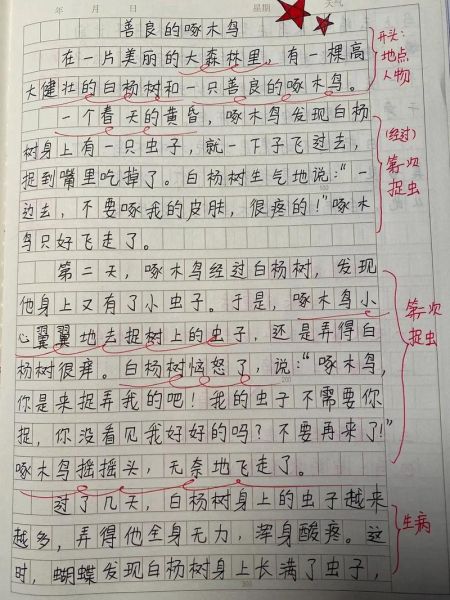 年 月 日 星期 天气
善良的啄木鸟
在一片美丽的大森林里，有一棵高
大健壮的白杨树和一只善良的啄木鸟。
一个春天的黄昏，啄木鸟发现白杨
树身上有一只虫子，就一下子飞过去，
捉到嘴里吃掉了。白杨树生气地说：“一
边去，不要啄我的皮肤，很疼的！”啄木
鸟只好飞走了。
第二天，啄木鸟经过白杨树，发现
他身上又有了小虫子。于是，啄木鸟小
心翼翼地去捉树上的虫子，还是弄得白
杨树很痒。白杨树恼怒了，说：“啄木鸟，
你是来捉弄我的吧！我的虫子不需要你
捉，你没看见我好好的吗？不要再来了！”
啄木鸟摇摇头，无奈地飞走了。
过了几天，白杨树身上的虫子越来
越多，弄得他全身无力，浑身酸疼。这
时，蝴蝶发现白杨树身上长满了虫子，
开头：
地点
人物
（经过）
第一次
捉虫
第二次
捉虫
生病
100
200
300